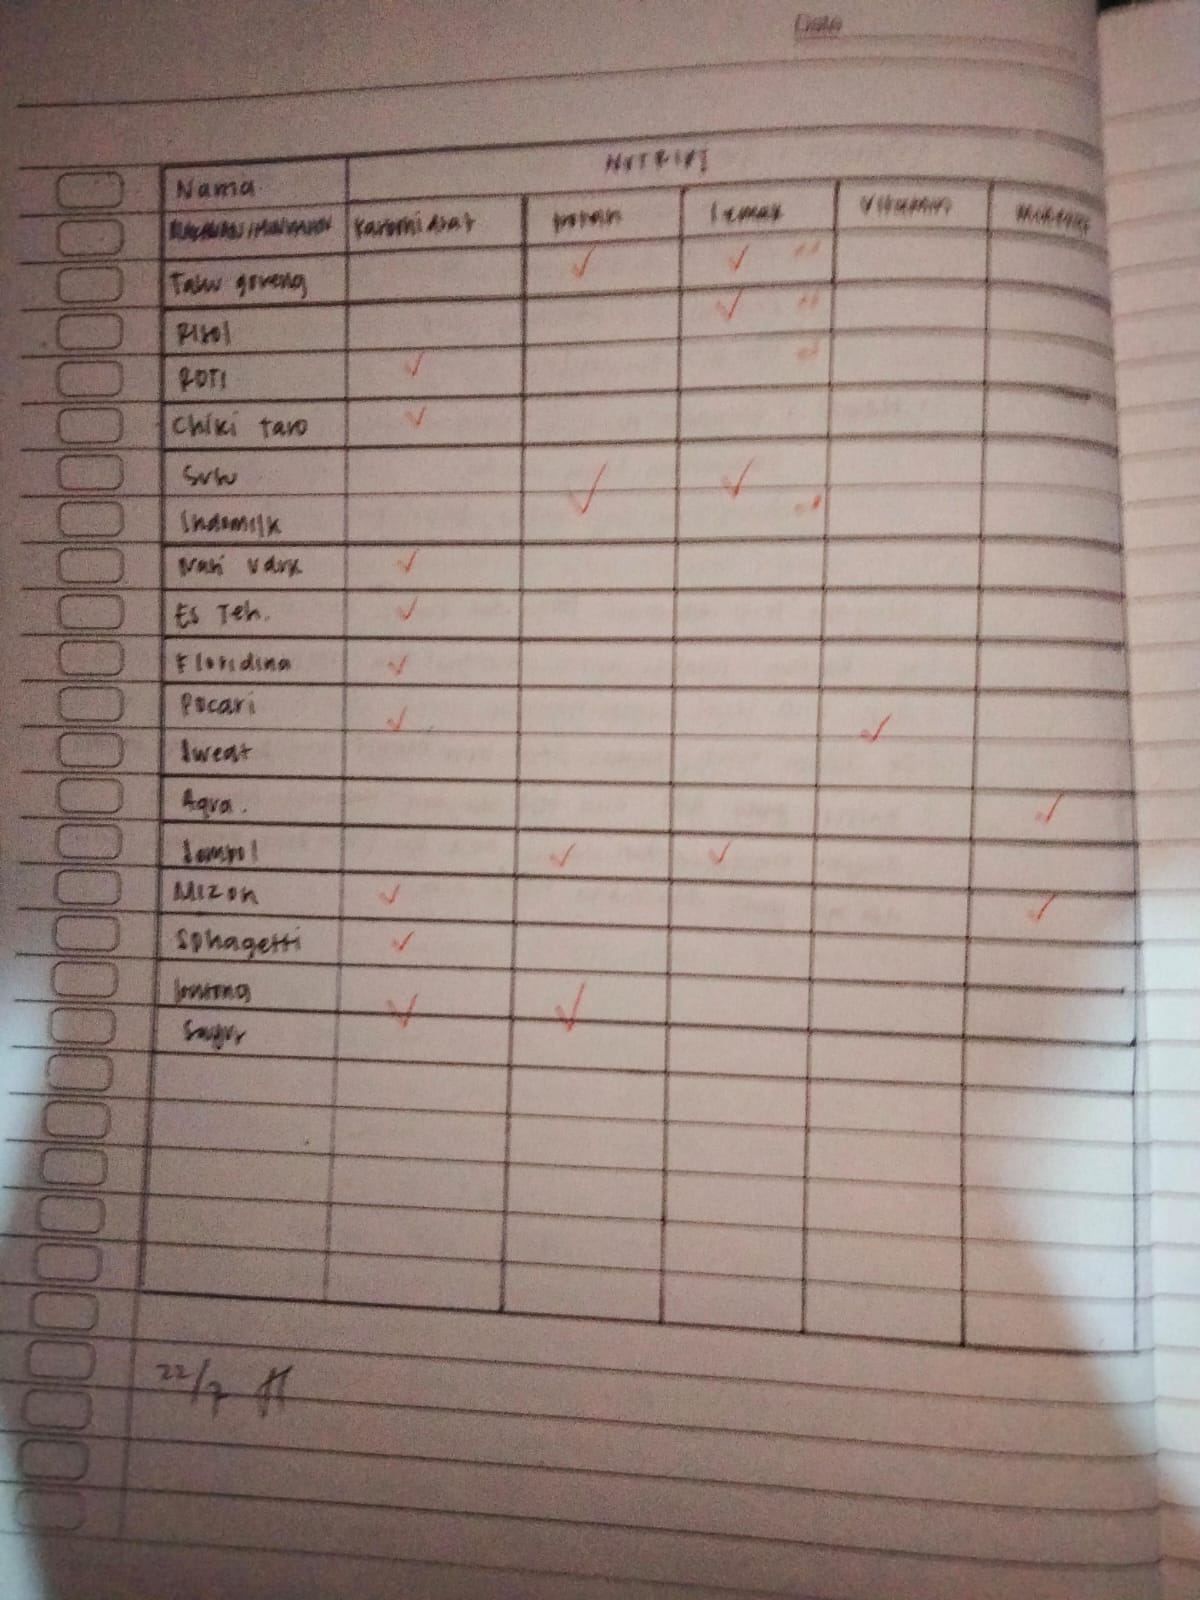 Date
NUTRISI
Nama
MAKANAN/MINUMAN Karbohidrat protein lemak vitamin mineral
Tahu goreng ✓ ✓
Risol ✓
ROTI ✓
Chiki taro ✓
Susu
Indomilk ✓ ✓
Nasi uduk ✓
Es Teh. ✓
Floridina ✓
Pocari
Sweat ✓ ✓
Aqua. ✓
Sempol ✓ ✓
MIZON ✓ ✓
Sphagetti ✓
Lontong
Sayur ✓ ✓
22/7